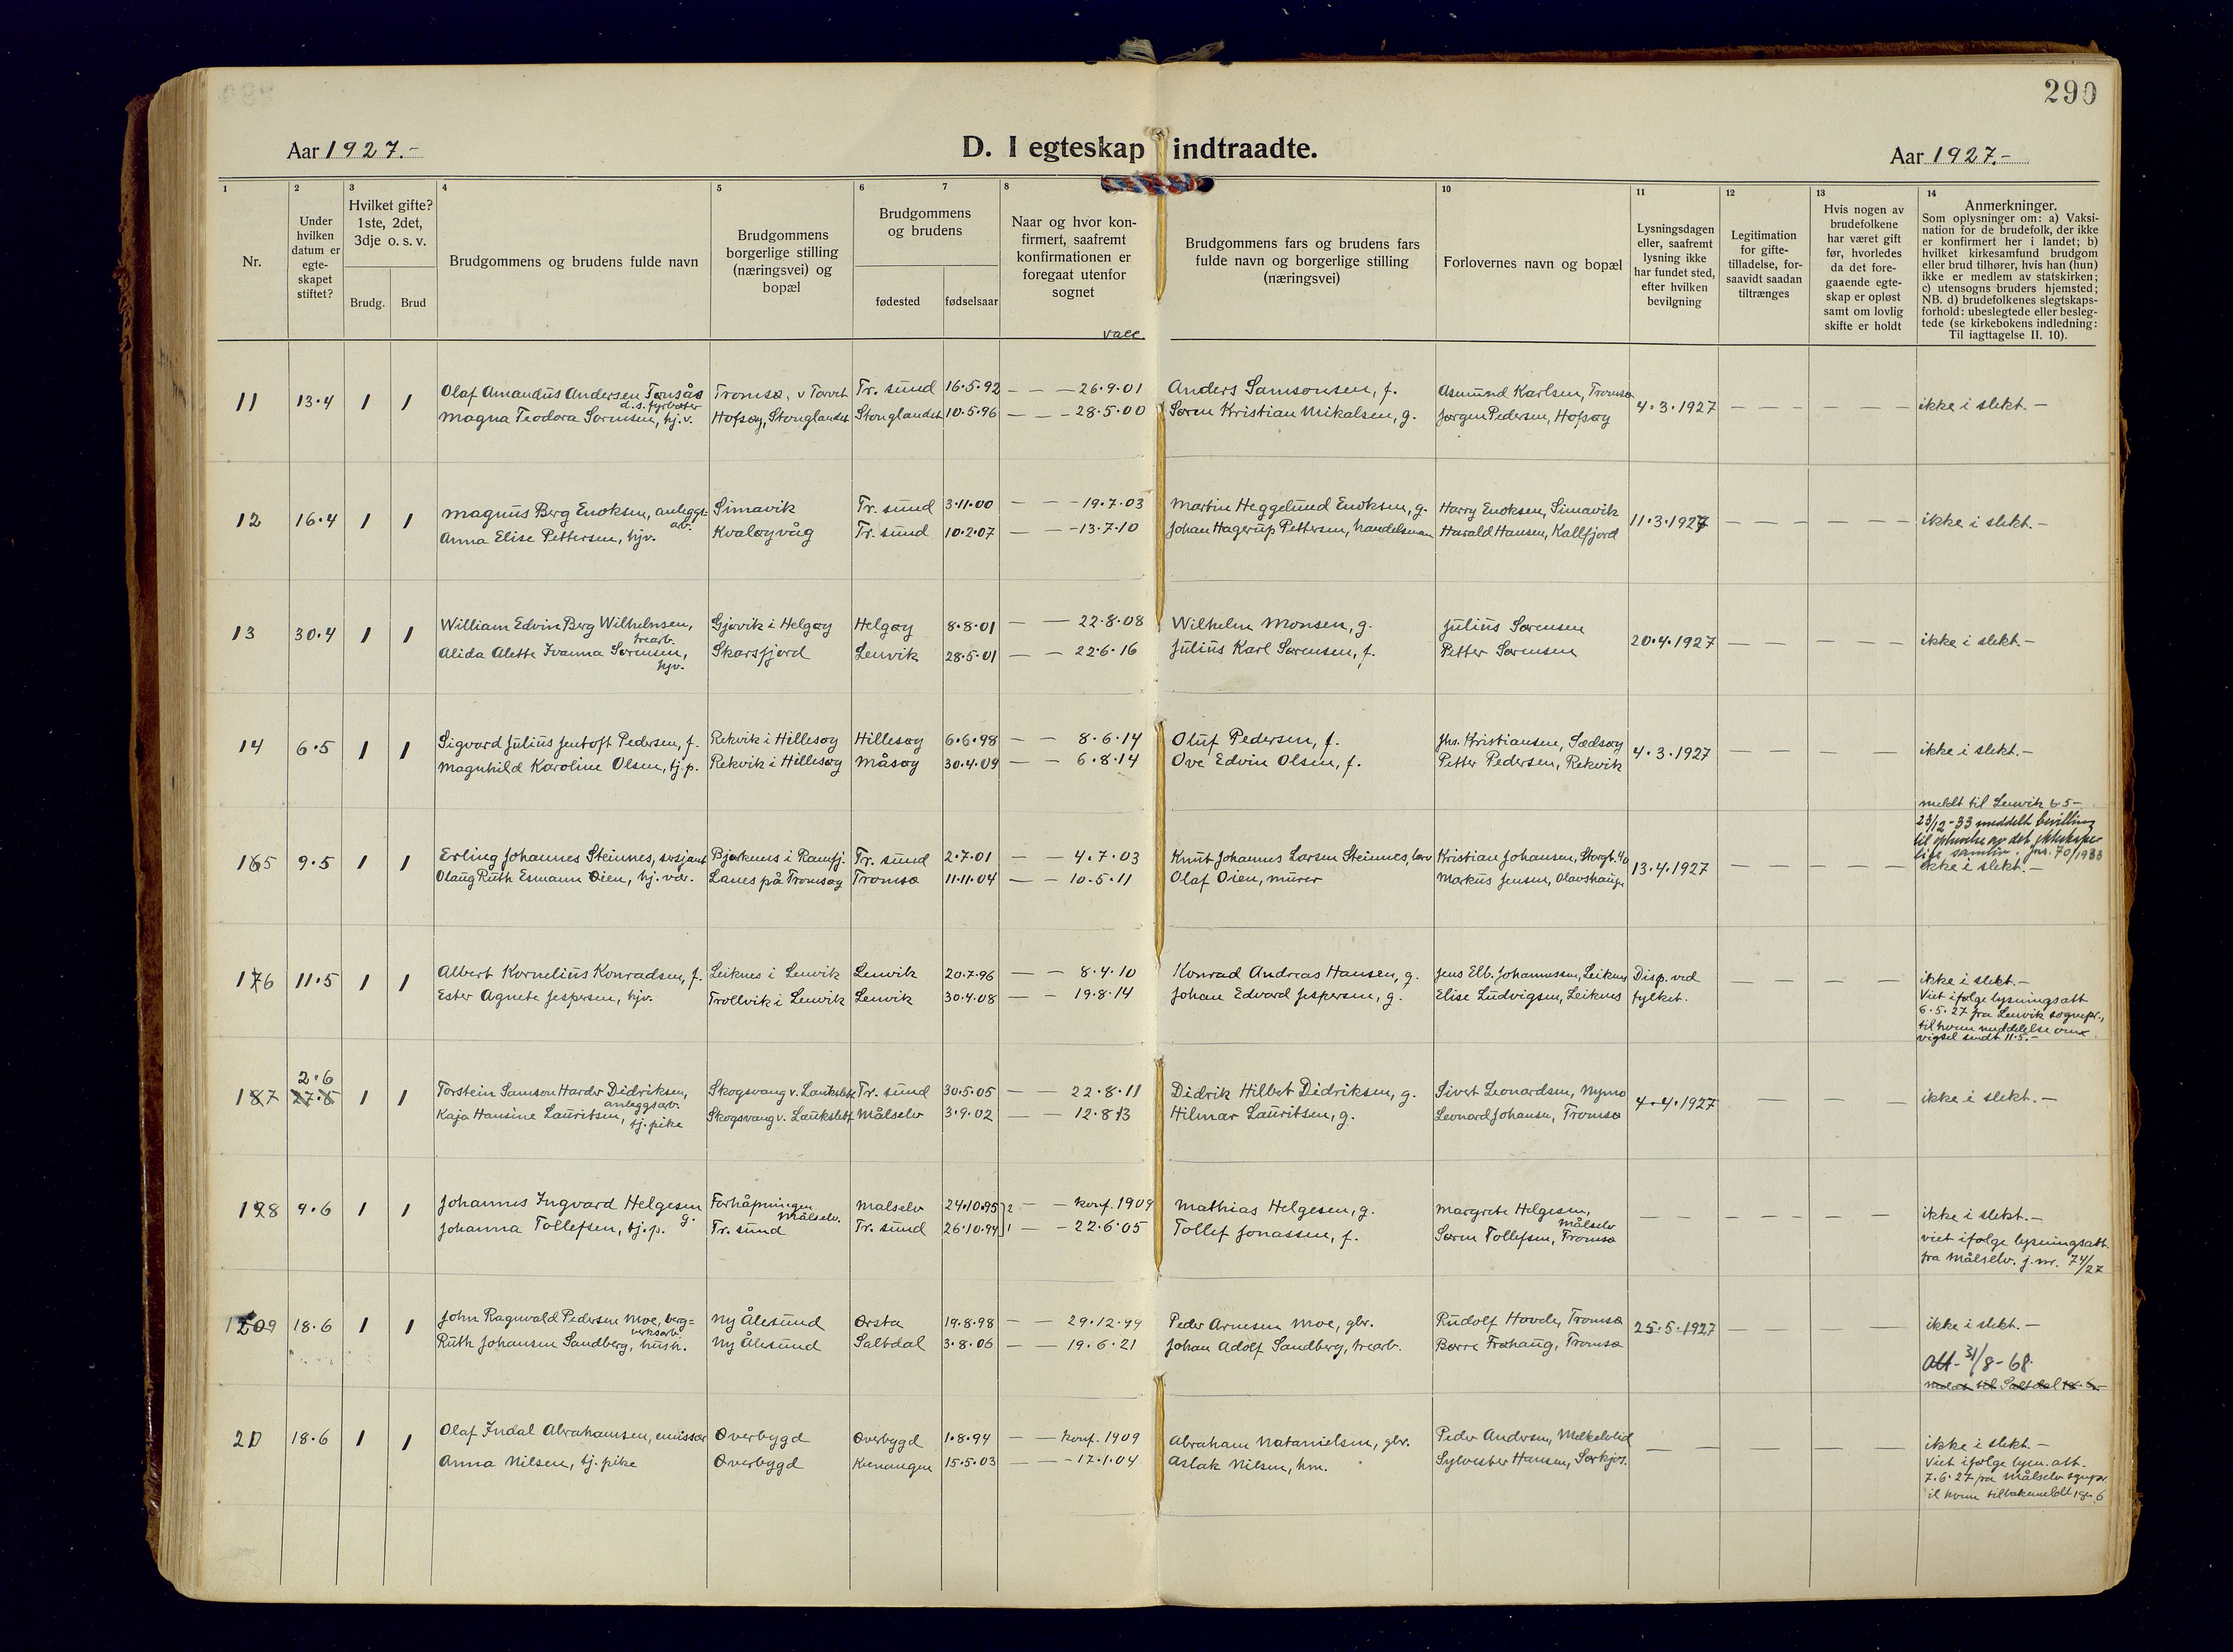 290
Aar 1927.-
D. I egteskap indtraadte.
Aar 1927.-
1 2 3 4 5 6 7 8 10 11 12 13 14
Nr.
Under hvilken datum er egte-skapet stiftet?
Hvilket gifte? 1ste, 2det, 3dje o. s. v.
Brudg. Brud
Brudgommens og brudens fulde navn
Brudgommens borgerlige stilling (næringsvei) og bopæl
Brudgommens og brudens
fødested fødselsaar
Naar og hvor kon-firmert, saafremt konfirmationen er foregaat utenfor sognet
vacc.
Brudgommens fars og brudens fars fulde navn og borgerlige stilling (næringsvei)
Forlovernes navn og bopæl
Lysningsdagen eller, saafremt lysning ikke har fundet sted, efter hvilken bevilgning
Legitimation for gifte-tilladelse, for-saavidt saadan tiltrænges
Hvis nogen av brudefolkene har været gift før, hvorledes da det fore-gaaende egte-skap er opløst samt om lovlig skifte er holdt
Anmerkninger.
Som oplysninger om: a) Vaksi-nation for de brudefolk, der ikke er konfirmert her i landet; b) hvilket kirkesamfund brudgom eller brud tilhører, hvis han (hun) ikke er medlem av statskirken; c) utensogns bruders hjemsted; NB. d) brudefolkenes slegtskaps-forhold: ubeslegtede eller besleg-tede (se kirkebokens indledning: Til iagttagelse II. 10).
11 13.4 1 1 Olaf Amandus Andersen Tønsås d.s. fyrbøter Tromsø Tr. sund 16.5.92 — — — 26.9.01 Anders Samsonsen, f. Asmund Karlsen, Tromsø 4.3.1927 — — — — — — ikke i slekt. —
Magna Teodora Sørensen, hj.v. Hofsøy, Stonglandet Stonglandet 10.5.96 — — — 28.5.00 Søren Kristian Mikalsen, g. Jørgen Pedersen, Hofsøy
12 16.4 1 1 Magnus Berg Enoksen, anleggs-arb. Simavik Tr. sund 3.11.00 — — — 19.7.03 Martin Heggelund Enoksen, g. Harry Enoksen, Simavik 11.3.1927 — — — — — — ikke i slekt. —
Anna Elise Pettersen, hjv. Kvaløyvåg Tr. sund 10.2.07 — — 13.7.10 Johan Hagerup Pettersen, handelsman Harald Hansen, Kallfjord
13 30.4 1 1 William Edvin Berg Wilhelmsen, trearb. Gjøvik i Helgøy Helgøy 8.8.01 — — 22.8.08 Wilhelm Monsen, g. Julius Sørensen 20.4.1927 — — — — — ikke i slekt. —
Alida Alette Ivanna Sørensen, hjv. Skarsfjord Lenvik 28.5.01 — — 22.6.16 Julius Karl Sørensen, f. Petter Sørensen
14 6.5 1 1 Sigvard Julius Jentoft Pedersen, f. Rekvik i Hillesøy Hillesøy 6.6.98 — — 8.6.14 Oluf Pedersen, f. Jhs. Kristiansen, Sædsøy 4.3.1927 — — — — — ikke i slekt. —
Magnhild Karoline Olsen, tj.p. Rekvik i Hillesøy Måsøy 30.4.09 — — 6.8.14 Ove Edvin Olsen, f. Petter Pedersen, Rekvik
meldt til Lenvik 6.5 —
23/12-33 meddelt bevilling
til ophevelse av det ekteskape-
lige samliv. Jnr. 70/1933
165 9.5 1 1 Erling Johannes Steinnes, sersjant Bjørkenes i Ramfj. Tr. sund 2.7.01 — — 4.7.03 Knut Johannes Larsen Steinnes, Kristian Johansen, Storgt. 13.4.1927 — — — — — ikke i slekt. —
Olaug Ruth Esmann Øien, hj. vær. Lanes på Tromsøy Tromsø 11.11.04 — — 10.5.11 Olaf Øien, murer Markus Jensen, Olavshaug
176 11.5 1 1 Albert Kornelius Konradsen, f. Leiknes i Lenvik Lenvik 20.7.96 — — 8.4.10 Konrad Andreas Hansen, g. Jens Elb. Johannessen, Leiknes Disp. ved — — — — — ikke i slekt. —
Ester Agnete Jespersen, hjv. Trollvik i Lenvik Lenvik 30.4.08 — — 19.8.14 Johan Edvard Jespersen, g. Elise Ludvigsen, Leiknes fylket.
Viet ifølge lysningsatt
6.5.27 fra Lenvik sognepr.,
til hvem meddelelse om
vigsel sendt 11.5. —
187 2.6 27.5 1 1 Torstein Samson Harder Didriksen, anleggsarb. Skogsvang v. Laukslett Tr. sund 30.5.05 — — 22.8.11 Didrik Hilbert Didriksen, g. Sivert Leonardsen, Nymo 4.4.1927 — — — ikke i slekt. —
Kaja Hansine Lauritsen, tj. pike Skogsvang v. Laukslett Målselv 3.9.02 — — 12.8.13 Hilmar Lauritsen, g. Leonard Johansen, Tromsø
198 9.6 1 1 Johannes Ingvard Helgesen g. Forhåpningen Målselv. Målselv 24.10.95 2 — — konf. 1909 Mathias Helgesen, g. Margrete Helgesen, Målselv — — — — — — — ikke i slekt. —
Johanna Tollefsen, tj.p. Tr. sund Tr. sund 26.10.94 1 — — 22.6.05 Tollef Jonassen, f. Søren Tollefsen, Tromsø
viet ifølge lysningsatt.
fra Målselv. j.nr. 74/27
1209 18.6 1 1 John Ragnvald Pedersen Moe, berg-verksarb. Ny Ålesund Ørsta 19.8.98 — — 29.12.99 Peder Arnesen Moe, gbr. Rudolf Hovde, Tromsø 25.5.1927 — — — — — ikke i slekt. —
Ruth Johansen Sandberg, hush. Ny Ålesund Saltdal 3.8.06 — — 19.6.21 Johan Adolf Sandberg, trearb. Børre Frøhaug, Tromsø
Att. 31/8-68.
meldt til Saltdal 18.6. —
20 18.6 1 1 Olaf Indal Abrahamsen, emissær Øverbygd Øverbygd 1.8.94 — — konf. 1909 Abraham Natanielsen, gbr. Peder Andersen, Melkelvlid — — — — — ikke i slekt. —
Anna Nilsen, tj. pike Øverbygd Kvenangen 15.5.03 — — — 17.1.04 Aslak Nilsen, hm. Sylvester Hansen, Sørkjos.
Viet ifølge lysn. att.
7.6.27 fra Målselv sognepr.
til hvem tilbakemeldt 18.6